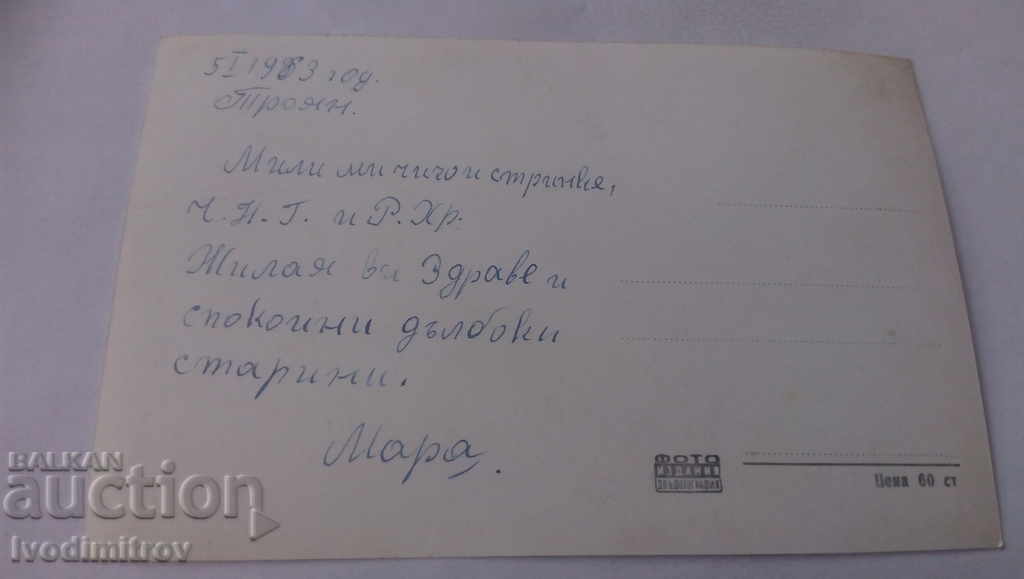 5 I 1963 год.
Троян.
Мили ми чичо и стринке,
Ч.Н.Г. и Р.Хр.
Жилая ви Здраве и
спокоини дълбоки
старини.
Мара.
ФОТО
ИЗДАНИЕ
Цена 60 ст
BALKAN
auction
Ivodimitrov